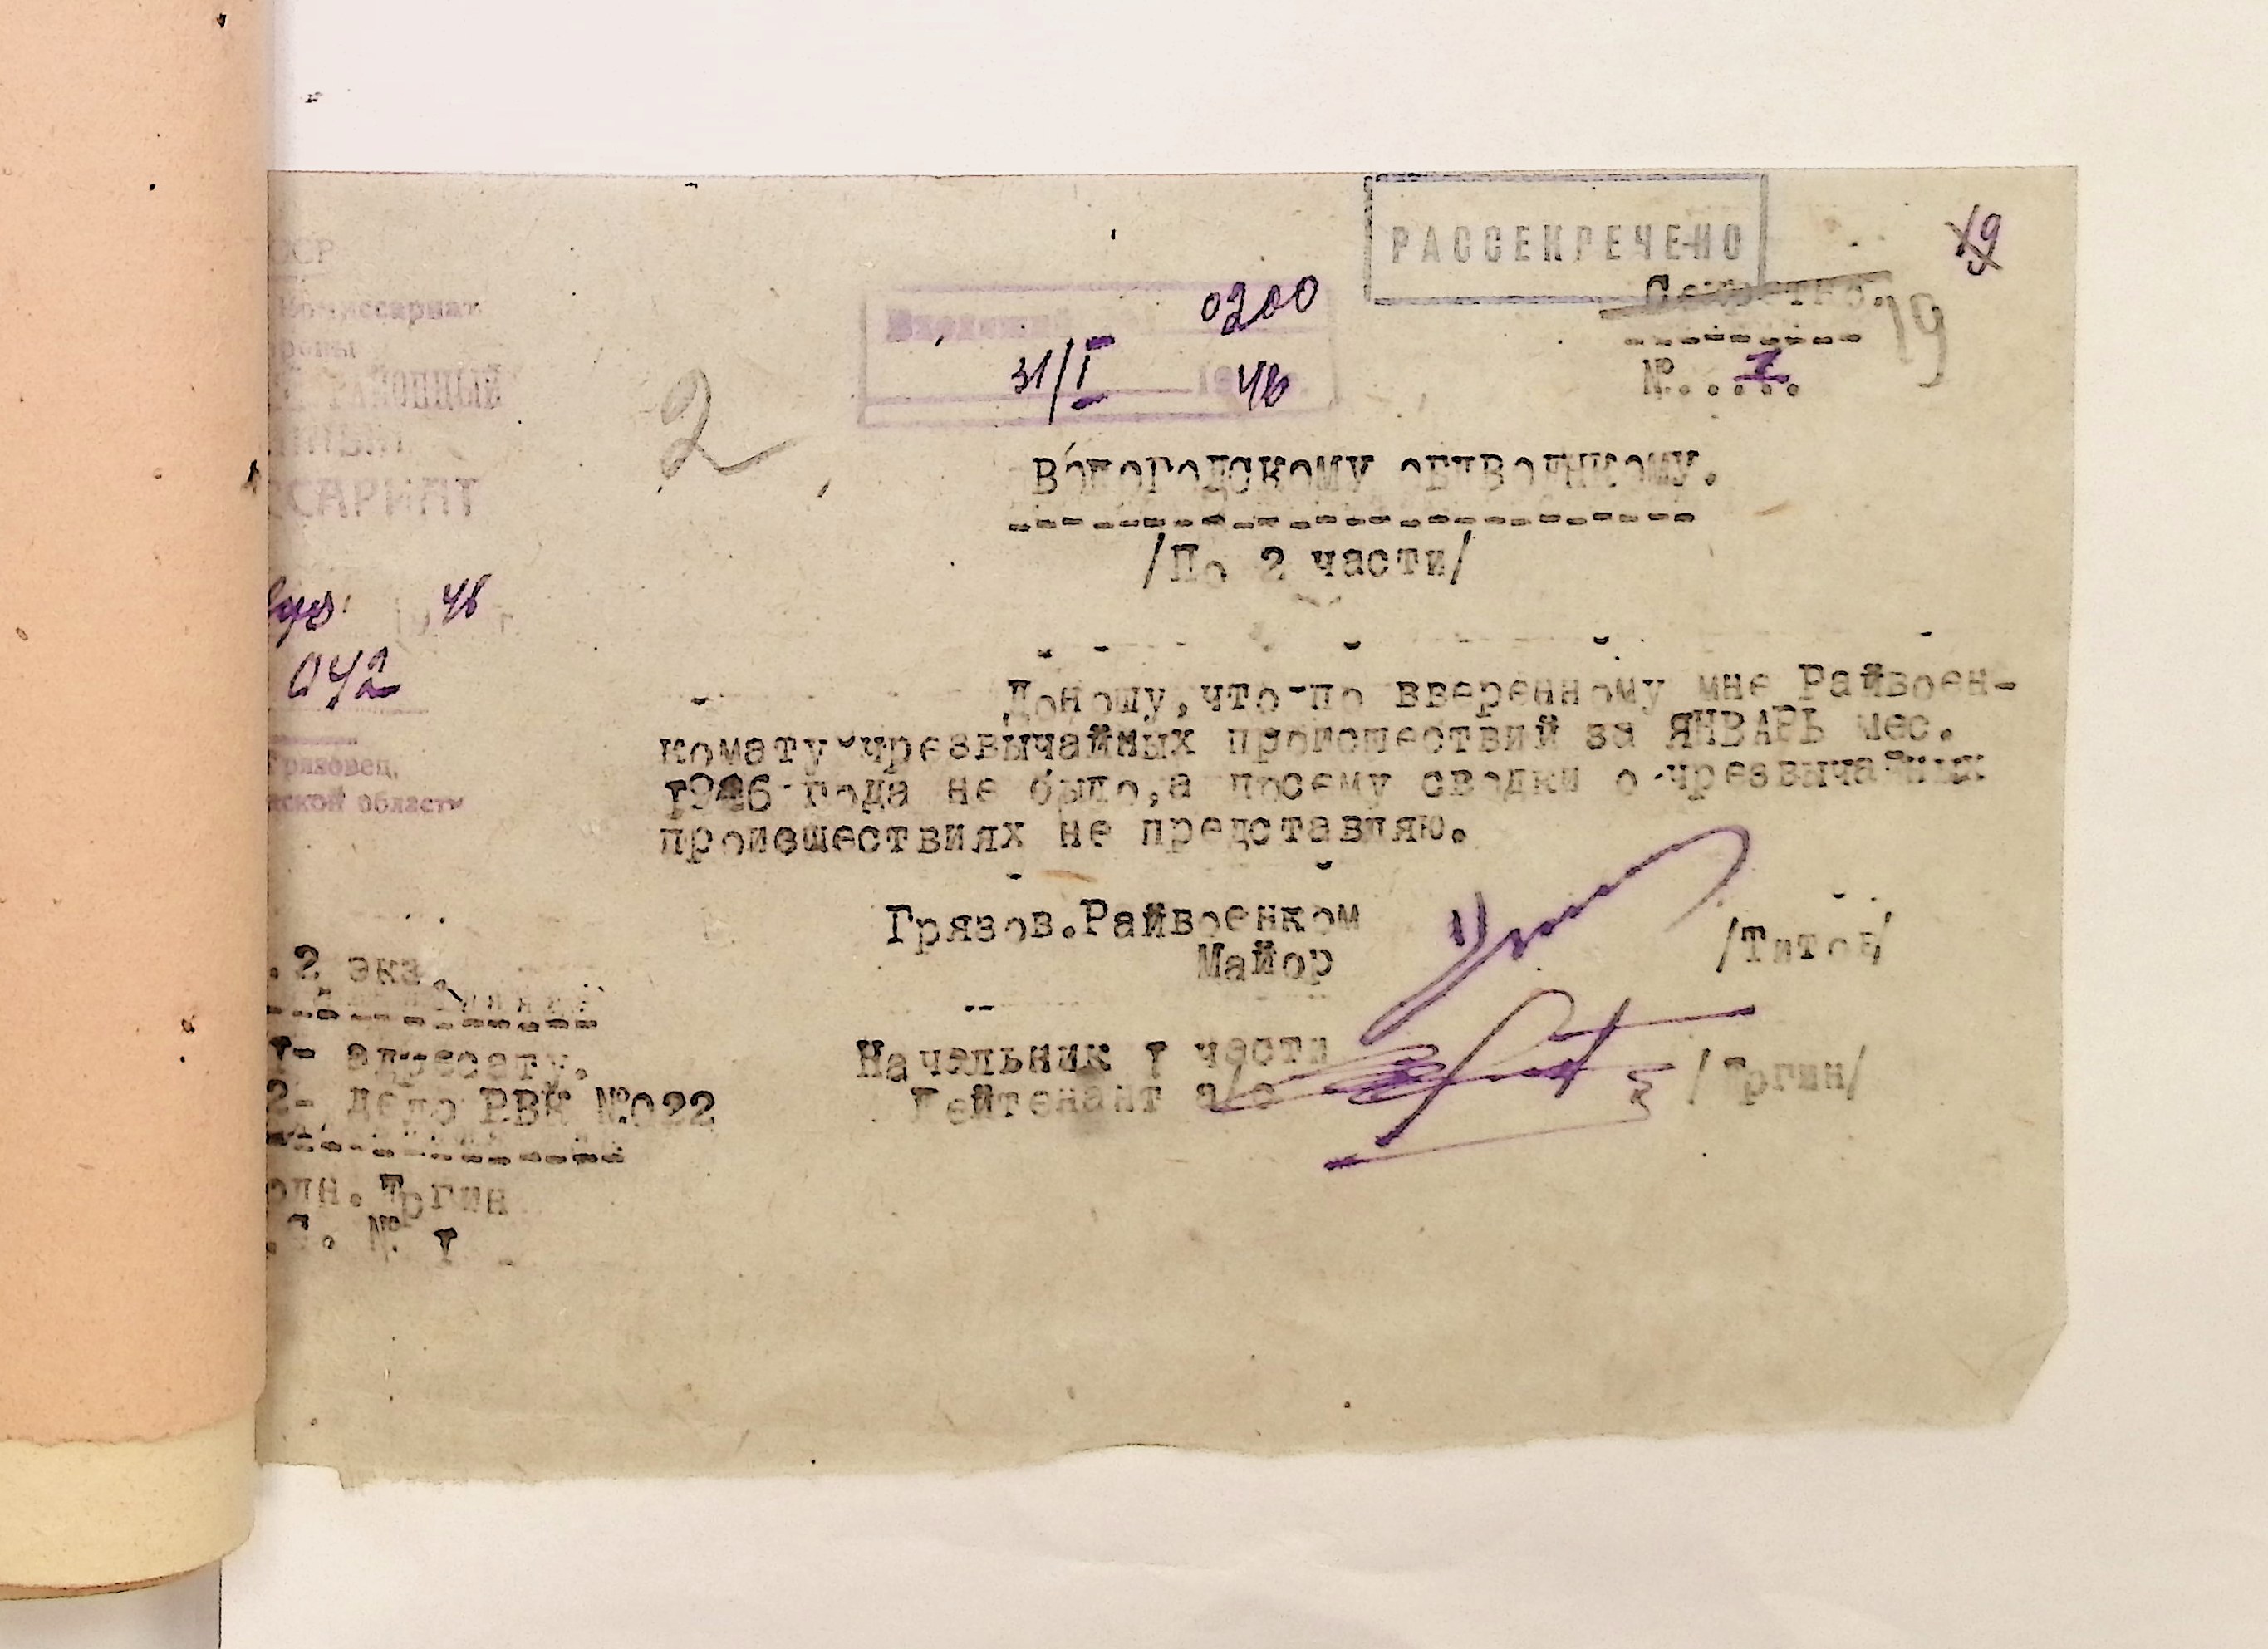 РАССЕКРЕЧЕНО
19
Секретно.
19
№.....1
Входящий
0200
31/I 1946
ССР
Комиссариат
роны
РАЙОННЫЙ
САРИАТ
46
19 г.
042
Грязовец,
ской области
2
Вологодскому облвоенкому.
/По 2 части/
Доношу,что по вверенному мне Райвоен-
комату чрезвычайных происшествий за ЯНВАРЬ мес.
1946 года не было,а посему сводки о чрезвычайных
происшествиях не представляю.
Грязов.Райвоенком
Майор
/Титов/
Начельник 1 части
Лейтенант а/с
.2 экз.
1- адресату.
2- дело РВК №022
№ 1